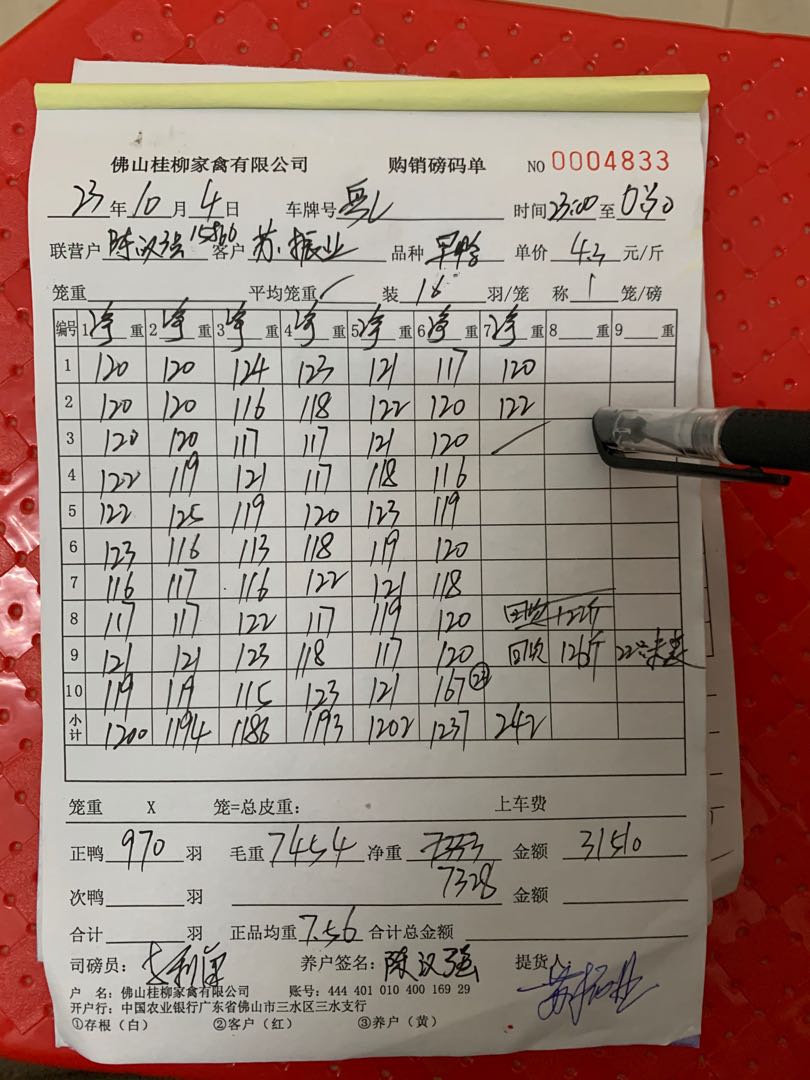 佛山桂柳家禽有限公司 购销磅码单 NO 0004833
23年10月4日 车牌号 时间23:00至
联营户陈汉强15860 客户苏振业 品种 单价4.3元/斤
笼重 平均笼重 装16羽/笼 称1笼/磅
编号 1净重 2净重 3净重 4净重 5净重 6净重 7净重 8重 9重
1 120 120 124 123 121 117 120
2 120 120 116 118 122 120 122
3 120 120 117 117 121 120
4 122 119 121 117 118 116
5 122 125 119 120 123 119
6 123 116 113 118 119 120
7 116 117 116 122 121 118
8 117 117 122 117 119 120 回收 122斤
9 121 121 123 118 117 120 回收 126斤
10 119 119 115 123 121 167 23
小计 1200 1194 1186 1193 1202 1237 242
笼重 X 笼=总皮重: 上车费
正鸭970羽 毛重7454 净重7333 金额31510
次鸭 羽 7328 金额
合计 羽 正品均重7.56 合计总金额
司磅员: 养户签名:陈汉强 提货人:苏振业
户 名:佛山桂柳家禽有限公司 账号:444 401 010 400 169 29
开户行:中国农业银行广东省佛山市三水区三水支行
①存根(白) ②客户(红) ③养户(黄)